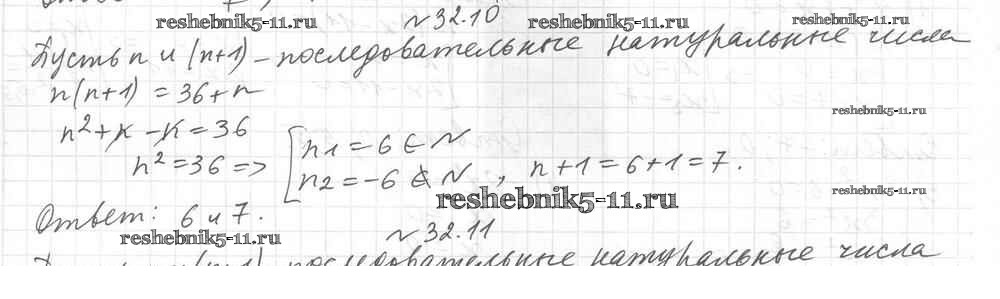 №32.10
reshebnik5-11.ru reshebnik5-11.ru reshebnik5-11.ru
Пусть n и (n+1) – последовательные натуральные числа
n(n+1) = 36+n
reshebnik5-11.ru
n²+n-n=36
n²=36 => [n1=6 ∈ N
n2=-6 ∉ N, n+1=6+1=7.
reshebnik5-11.ru reshebnik5-11.ru
Ответ: 6 и 7.
reshebnik5-11.ru №32.11
последовательные натуральные числа